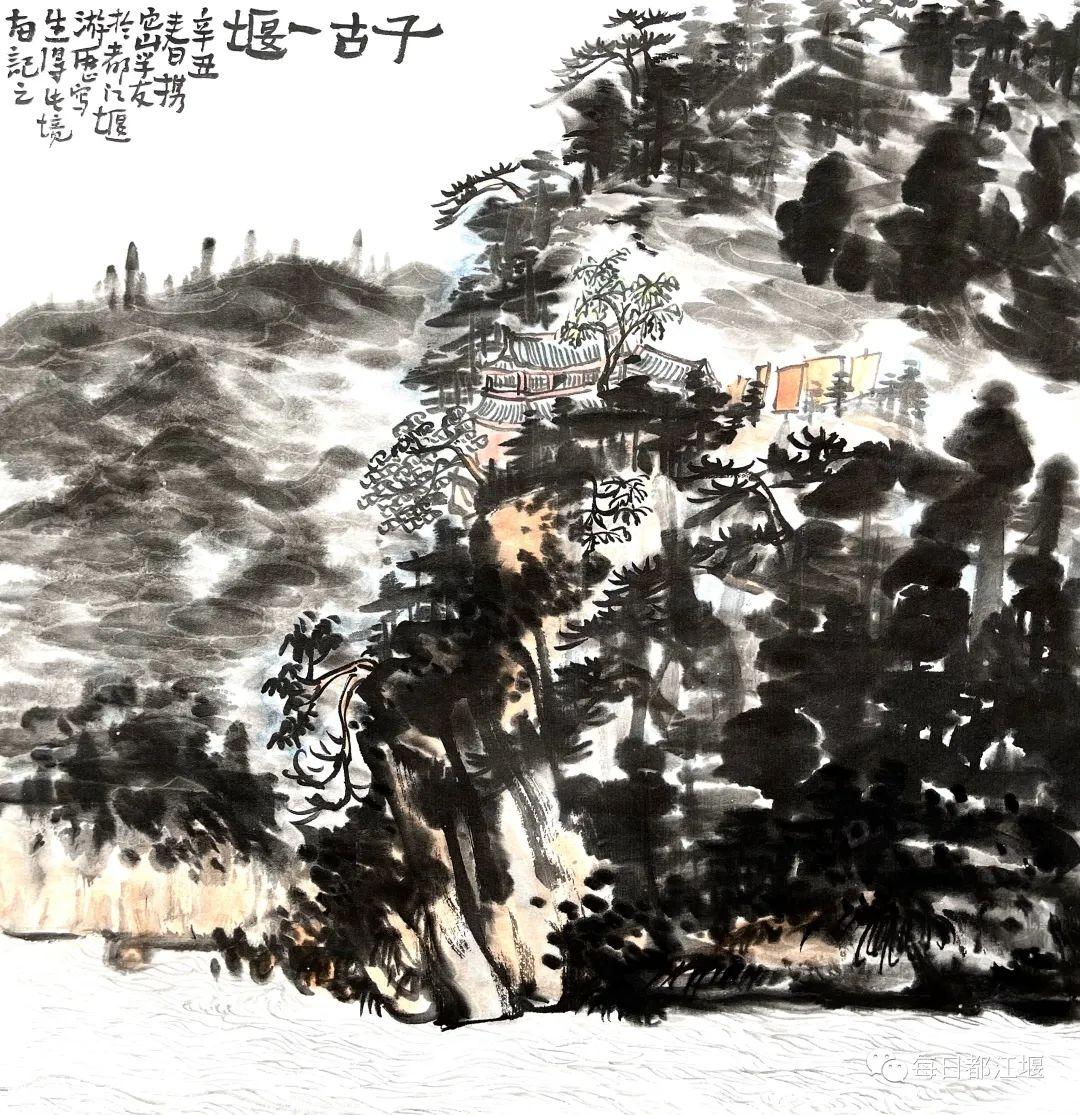 千古一堰
辛丑
春日携
山学友
於都江堰
游历写
生得此境
記之
每日都江堰